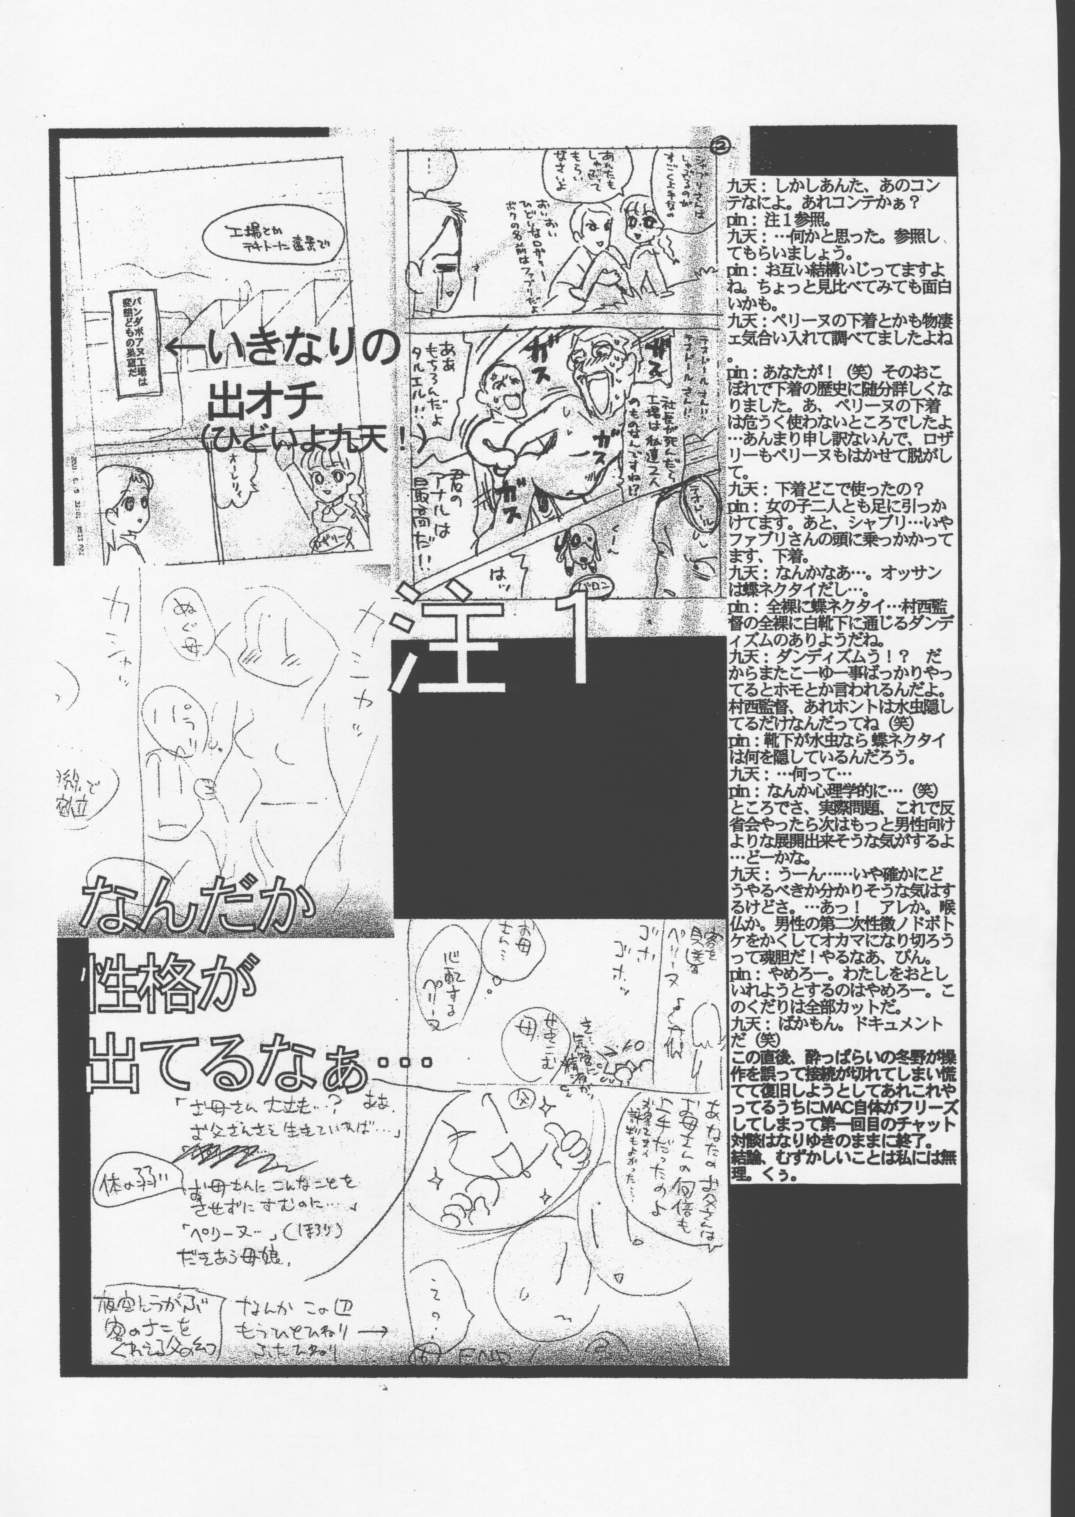 工場とか
テキトーに遠景で
パンダボアヌ工場は
変態どもの巣窟だ
←いきなりの
出オチ
(ひどいよ九天！)
オーレリィ
ロザリー
②
シャブリさんは
しゃぶるのが
すごく上手なの
あんたも
しゃぶって
もらい
なさいよ
おいおい
ひどいな口がァー
ボクの名前はファブリだよ
社長が死んだら
工場は私達2人
のものなんですね!?
ガス
ガス
ガス
ああ
もちろんだよ
タルエル…
君の
アナルは
最高だ!!
くーん
バロン
はッ
注1
ぬぐ母
ガシャッ
なんだか
性格が
出てるなぁ…
お母
さん…
心配する
ペリーヌ
ゴホ
ゴホッ
せきこむ
母
「お母さん大丈夫…? ああ、
お父さんさえ生きていれば…」
お母さんにこんなことを
させずにすむのに…」
体の弱い
「ペリーヌ…」(ほろり)
だきあう母娘。
夜空にうかぶ
客のナニを
くわえる父の幻
なんか この辺
もうひとひねり →
ふたひねり
父
あなたのお父さんは
お母さんの何倍も
上手だったのよ
その?
END
九天：しかしあんた、あのコン
テなによ。あれコンテかぁ？
pin：注１参照。
九天：…何かと思った。参照し
てもらいましょう。
pin：お互い結構いじってますよ
ね。ちょっと見比べてみても面白
いかも。
九天：ペリーヌの下着とかも物凄
ェ気合い入れて調べてましたよね
。
pin：あなたが！（笑）そのおこ
ぼれで下着の歴史に随分詳しくな
りました。あ、ペリーヌの下着
は危うく使わないところでしたよ
…あんまり申し訳ないんで、ロザ
リーもペリーヌもはかせて脱がし
て。
九天：下着どこで使ったの？
pin：女の子二人とも足に引っか
けてます。あと、シャブリ…いや
ファブリさんの頭に乗っかかって
ます、下着。
九天：なんかなあ…。オッサン
は蝶ネクタイだし…。
pin：全裸に蝶ネクタイ…村西監
督の全裸に白靴下に通じるダンデ
ィズムのありようだね。
九天：ダンディズムう！？　だ
からまたこーゆー事ばっかりやっ
てるとホモとか言われるんだよ。
村西監督、あれホントは水虫隠し
てるだけなんだってね（笑）
pin：靴下が水虫なら 蝶ネクタイ
は何を隠しているんだろう。
九天：…何って…
pin：なんか心理学的に…（笑）
ところでさ、実際問題、これで反
省会やったら次はもっと男性向け
よりな展開出来そうな気がするよ
…どーかな。
九天：うーん……いや確かにど
うやるべきか分かりそうな気はす
るけどさ。…あっ！　アレか。喉
仏か。男性の第二次性徴ノドボト
ケをかくしてオカマになり切ろう
って魂胆だ！やるなあ、ぴん。
pin：やめろー。わたしをおとし
いれようとするのはやめろー。こ
のくだりは全部カットだ。
九天：ばかもん。ドキュメント
だ（笑）
この直後、酔っぱらいの冬野が操
作を誤って接続が切れてしまい慌
てて復旧しようとしてあれこれや
ってるうちにMAC自体がフリーズ
してしまって第一回目のチャット
対談はなりゆきのままに終了。
結論、むずかしいことは私には無
理。くぅ。